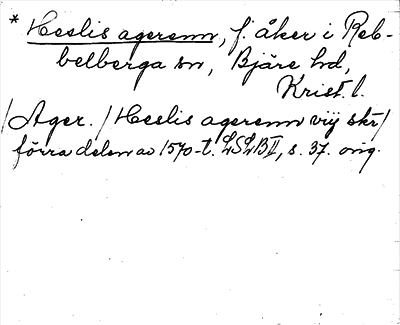 * Heslis agerenn, f. åker i Reb-
belberga sn, Bjäre hd,
Krist. l.
/Ager./ Heslis agerenn vij skr/
förra delen av 1570-t. LSLB II, s. 37. orig.